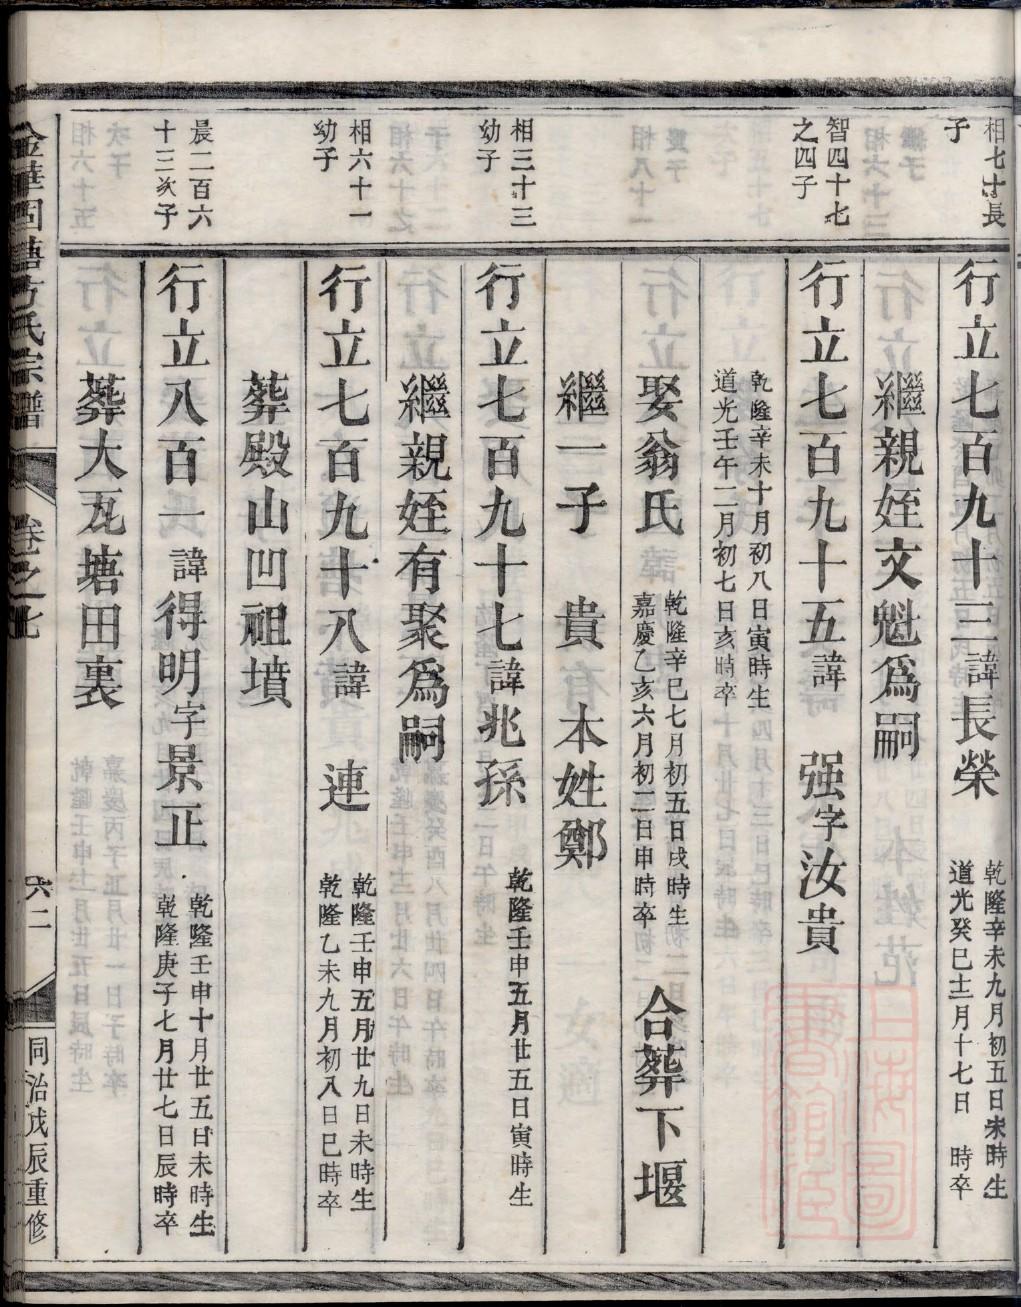 相七十長
子
行立七百九十三諱長榮
乾隆辛未九月初五日未時生
道光癸巳十二月十七日 時卒
繼親姪文魁爲嗣
智四十七
之四子
行立七百九十五諱 强字汝貴
乾隆辛未十月初八日寅時生
道光壬午二月初七日亥時卒
娶翁氏
乾隆辛巳七月初五日戌時生
嘉慶乙亥六月初二日申時卒
合葬下堰
繼一子 貴 本姓鄭
相三十三
幼子
行立七百九十七諱兆孫
乾隆壬申五月廿五日寅時生
繼親姪有聚爲嗣
相六十一
幼子
行立七百九十八諱 連
乾隆壬申五月廿九日未時生
乾隆乙未九月初八日巳時卒
葬殿山凹祖墳
晨二百六
十三次子
行立八百一諱得明字景正
乾隆壬申十月廿五日未時生
乾隆庚子七月廿七日辰時卒
葬大瓦塘田裏
金華固塘方氏宗譜
卷之七
六二
同治戊辰重修